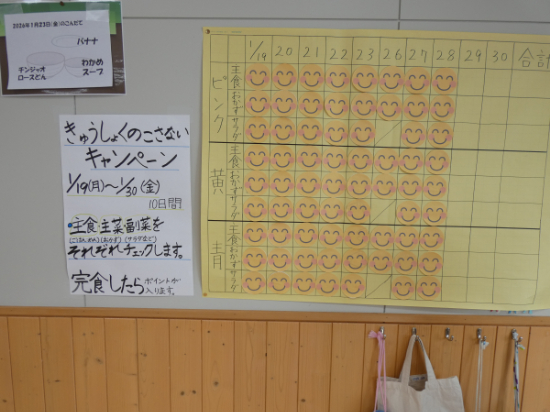 2026年1月23日(金)のこんだて
バナナ
チンジャオ
ロースどん
わかめ
スープ
きゅうしょくのこさない
キャンペーン
1/19(月)〜1/30(金)
10日間
主食主菜副菜を
(ごはん、めん)(おかず)(サラダなど)
それぞれチェックします。
完食したらポイントが
入ります。
1/19 20 21 22 23 26 27 28 29 30 合計
ピンク
主食
おかず
サラダ
黄
主食
おかず
サラダ
青
主食
おかず
サラダ